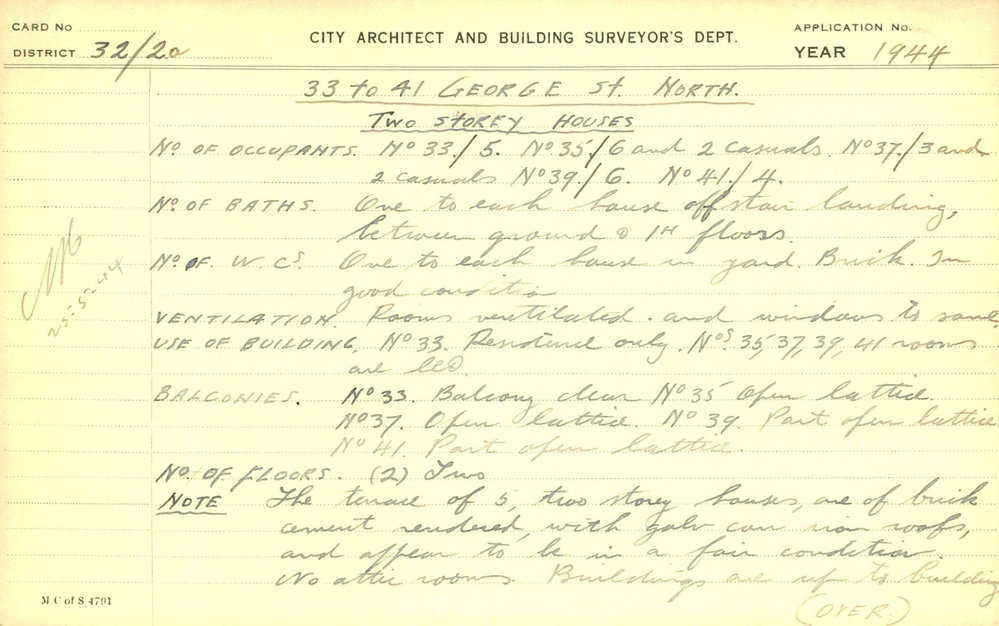 CARD No
DISTRICT 32/2a
CITY ARCHITECT AND BUILDING SURVEYOR'S DEPT.
APPLICATION No.
YEAR 1944
33 to 41 GEORGE St. NORTH.
TWO STOREY HOUSES
No. OF OCCUPANTS. No 33./5. No 35./6 and 2 casuals. No 37./3 and
2 casuals No 39./6. No 41./4.
No. OF BATHS. One to each house off stair landing,
between ground & 1st floors.
No. OF W.Cs. One to each house in yard. Brick. In
good condition
VENTILATION. Rooms ventilated. and windows to same.
USE OF BUILDING. No 33. Residence only. Nos 35, 37, 39, 41 rooms
are let.
BALCONIES. No 33. Balcony clear No 35 Open lattice
No 37. Open lattice. No 39 Part open lattice
No 41. Part open lattice.
No. OF FLOORS. (2) Two
NOTE The terrace of 5, two storey houses, are of brick
cement rendered, with galv corr iron roofs,
and appear to be in a fair condition.
No attic rooms. Buildings are up to building
(OVER.)
25-5-44
M C of S 4791